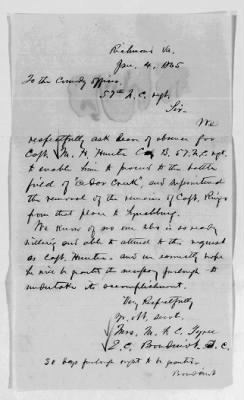 Richmond Va.
Jan. 4, 1865
To the Comdg Officer,
57th N.C. regt.
Sir-
We
respectfully ask leave of absence for
Capt. M. H. Hunter Co. B. 57. N.C. regt.
to enable him to proceed to the battle
field of "Cedar Creek", and superintend
the removal of the remains of Capt.
from that place to Lynchburg.
We know of no one who is so ready
willing and able to attend to this request
as Capt. Hunter - and we earnestly hope
he will be granted the necessary furlough to
undertake its accomplishment.
Very Respectfully
Mrs. M. R. C.
E. C.
30 days furlough ought to be granted.